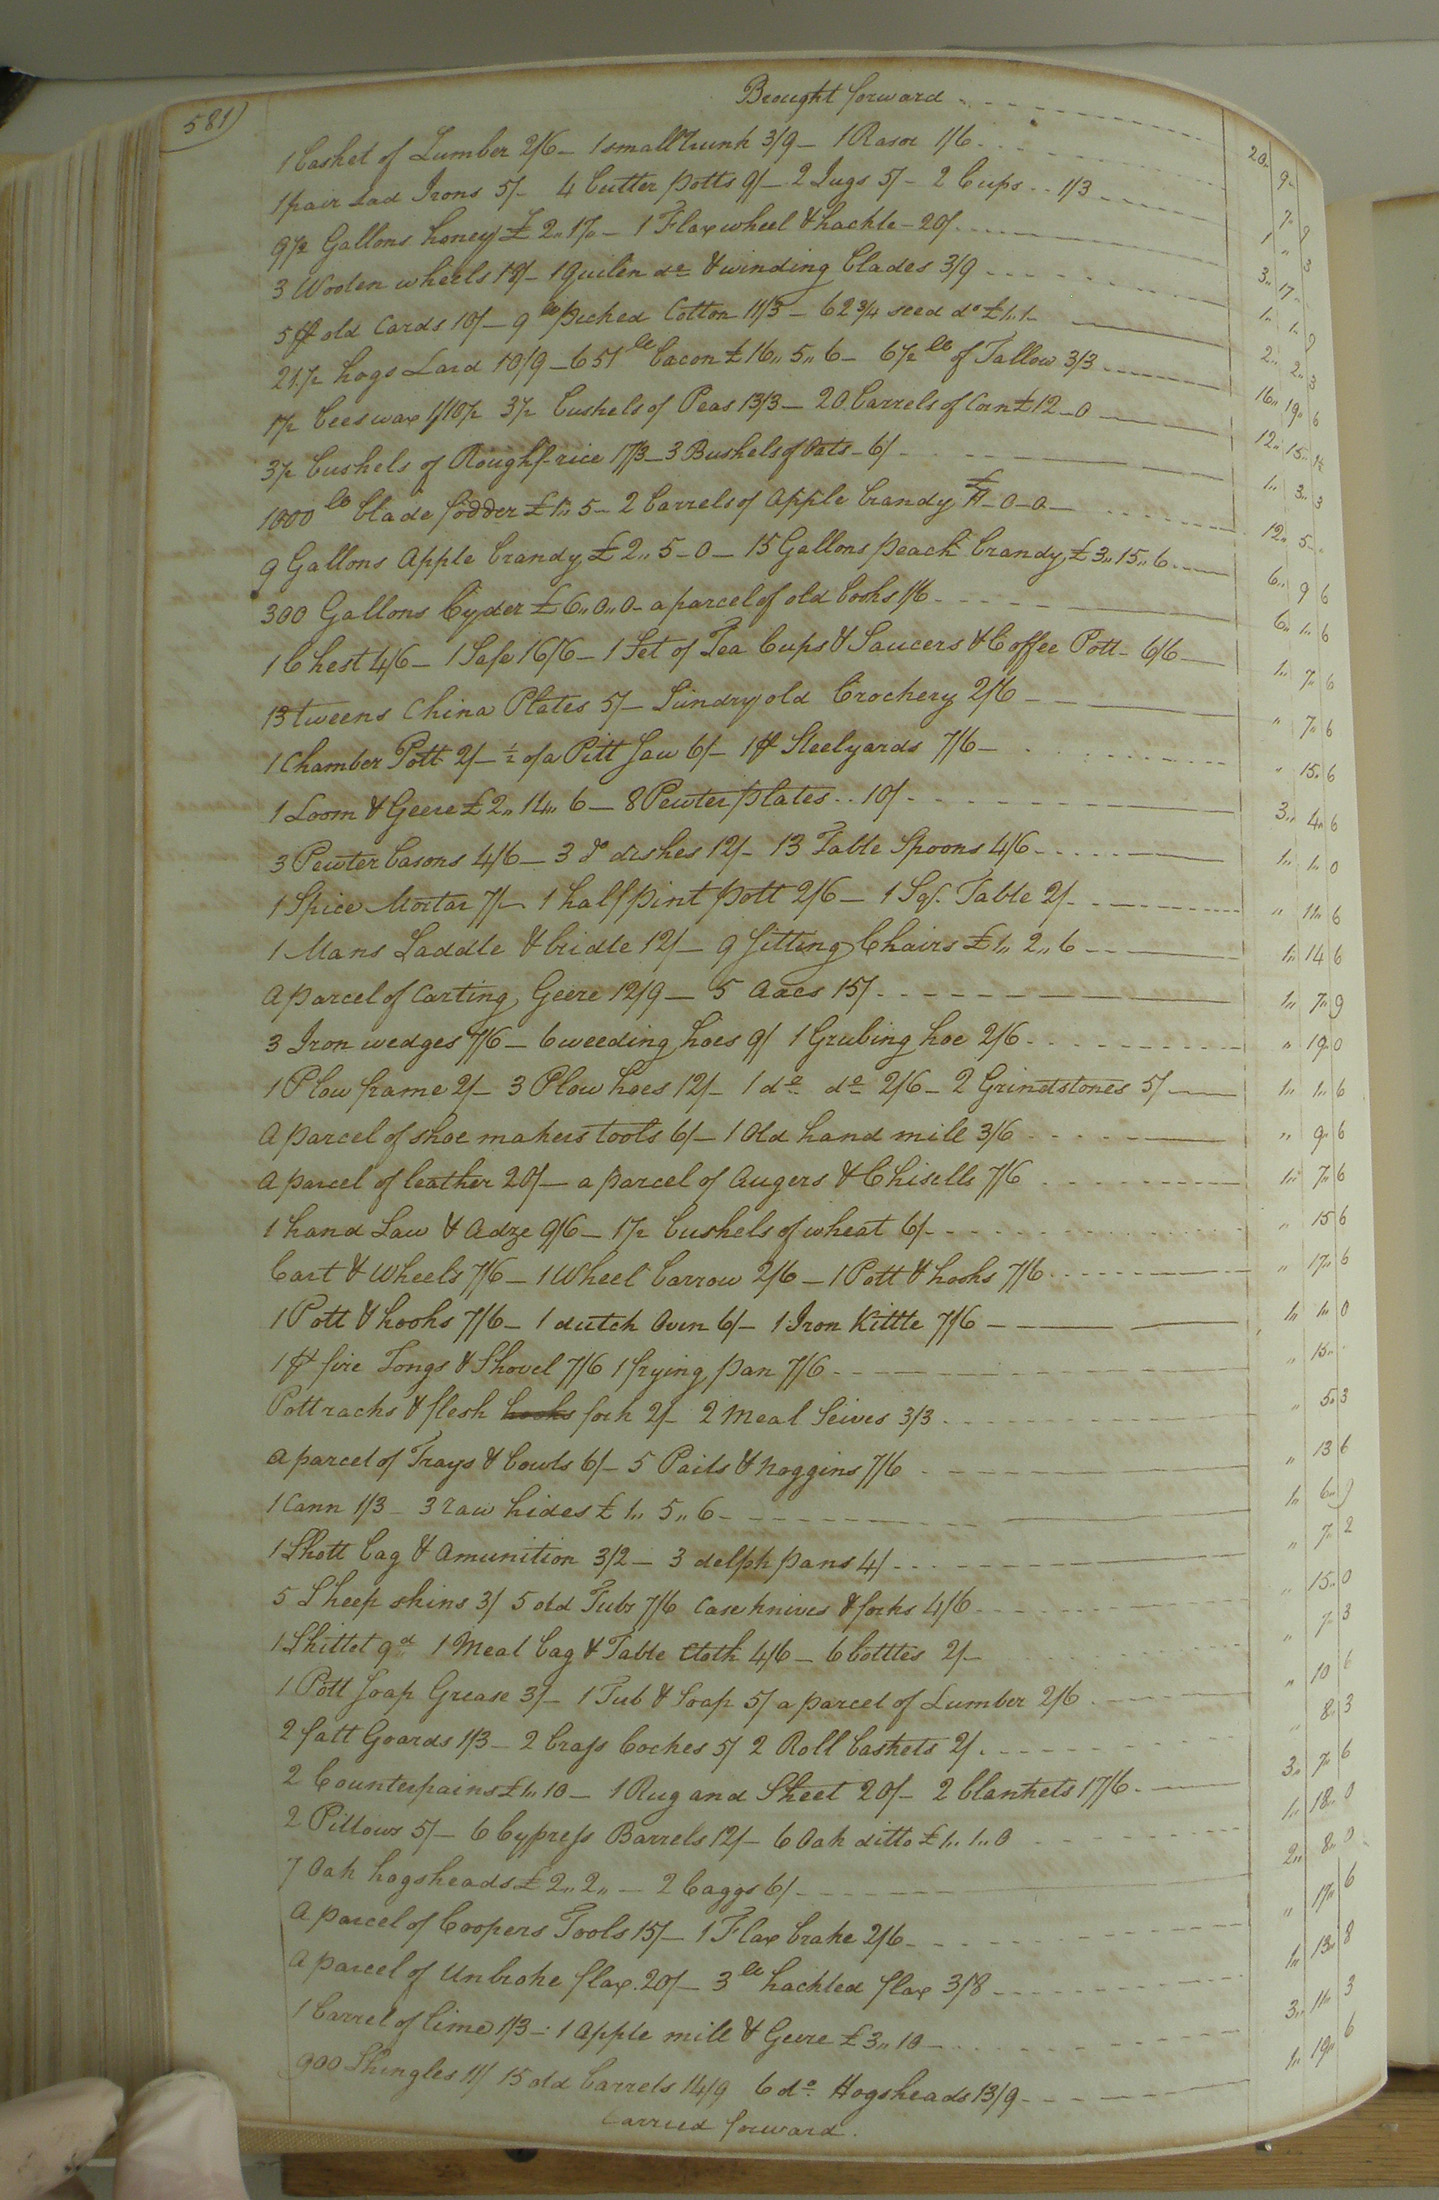 581)
Brought forward
1 basket of Lumber 2/6 – 1 small Trunk 3/9 – 1 Rasor 1/6 20 " 9 "
1 pair sad Irons 5/- 4 butter potts 9/- 2 Jugs 5/- 2 Cups .. 1/3
9½ Gallons honey £ 2 " 17/- – 1 Flax wheel & hackle – 20/ 3 " 17 "
3 Woolen wheels 18/- 1 Quilen do & winding blades 3/9 1 " 1 " 9
5 pr old Cards 10/ – 9 lb picked Cotton 11/3 – 62¾ seed do £1 " 1 2 " 2 " 3
21½ hogs Lard 10/9 – 651 lb bacon £16 " 5 " 6 – 6½ lb of Tallow 3/3 16 " 19 " 6
1½ bees wax 1/10½ 3½ bushels of Peas 13/3 – 20 barrels of Corn £12 – 0 12 " 15 " 1½
3½ bushels of Rough rice 17/3 – 3 Bushels of Oats – 6/ 1 " 3 " 3
1000 lb blade fodder £ 5 – 2 barrels of Apple brandy £ – 0 – 0 12 " 5 "
9 Gallons Apple brandy £ 2 " 5 – 0 – 15 Gallons peach brandy £ 3 " 15 " 6 6 " 9 6
300 Gallons Cyder £ 6 " 0 " 0 – a parcel of old books 1/6 6 " 1 " 6
1 Chest 4/6 – 1 Safe 16/6 – 1 Set of Tea Cups & Saucers & Coffee Pott – 6/6 1 " 7 " 6
13 tweens China Plates 5/ – Sundry old Crockery 2/6 " 7 " 6
1 Chamber Pott 2/ – ½ of a Pitt Saw 6/ – 1 pr Steelyards 7/6 – " 15 " 6
1 Loom & Geere £ 2 " 14 " 6 – 8 Pewter plates .. 10/ 3 " 4 " 6
3 Pewter basons 4/6 – 3 do dishes 12/- 13 Table Spoons 4/6 1 " 1 " 0
1 Spice Mortar 7/- 1 half pint pott 2/6 – 1 Sqr. Table 2/- " 11 " 6
1 Mans Saddle & bridle 12/ – 9 sitting Chairs £ 1 " 2 " 6 1 " 14 6
a parcel of Carting Geere 12/9 – 5 axes 15/ 1 " 7 " 9
3 Iron wedges 7/6 – 6 weeding hoes 9/ 1 Grubing hoe 2/6 " 19 " 0
1 Plow frame 2/ – 3 Plow hoes 12/ – 1 do do 2/6 – 2 Grindstones 5/ 1 " 1 " 6
a parcel of shoe makers tools 6/ – 1 Old hand mill 3/6 " 9 " 6
a parcel of leather 20/ – a parcel of augers & Chisells 7/6 1 " 7 " 6
1 hand Saw & adze 9/6 – 1½ bushels of wheat 6/- " 15 6
Cart & wheels 7/6 – 1 Wheel barrow 2/6 – 1 Pott & hooks 7/6 " 17 " 6
1 Pott & hooks 7/6 – 1 dutch Oven 6/ – 1 Iron Kittle 7/6 – 1 " 1 " 0
1 pr fire Tongs & Shovel 7/6 1 frying pan 7/6 " 15 "
Pott racks & flesh hooks fork 2/- 2 Meal Seives 3/3 " 5 " 3
a parcel of Trays & bowls 6/ – 5 Pails & noggins 7/6 " 13 6
1 Cann 1/3 – 3 raw hides £ 1 " 5 " 6 – 1 " 6 " 9
1 Shott bag & amunition 3/2 – 3 delph pans 4/ " 7 " 2
5 Sheep skins 3/ 5 old Tubs 7/6 Case knives & forks 4/6 " 15 " 0
1 Skillet 9d 1 Meal bag & Table Cloth 4/6 – 6 bottles 2/- " 7 " 3
1 Pott soap Grease 3/ – 1 Tub & soap 5/ a parcel of Lumber 2/6 " 10 6
2 fatt Goards 1/3 – 2 brass Cockes 5/ 2 Roll baskets 2/ " 8 " 3
2 Counterpains £1 " 10 – 1 Rug and Sheet 20/ – 2 blankets 17/6 3 " 7 " 6
2 Pillows 5/ – 6 Cypress Barrels 12/ – 6 Oak ditto £ 1 " 1 " 0 1 " 18 " 0
7 Oak hogsheads £ 2 " 2 " – 2 baggs 6/ 2 " 8 " 0
a parcel of Coopers Tools 15/ – 1 Flax brake 2/6 " 17 " 6
a parcel of Unbroke flax 20/ – 3 lb hackled flax 3/8 1 " 13 " 8
1 barrel of lime 1/3 – 1 Apple mill & Geere £ 3 " 10 – 3 " 11 " 3
900 Shingles 11/ 15 old barrels 14/9 6 do Hogsheads 13/9 1 " 19 " 6
Carried forward.